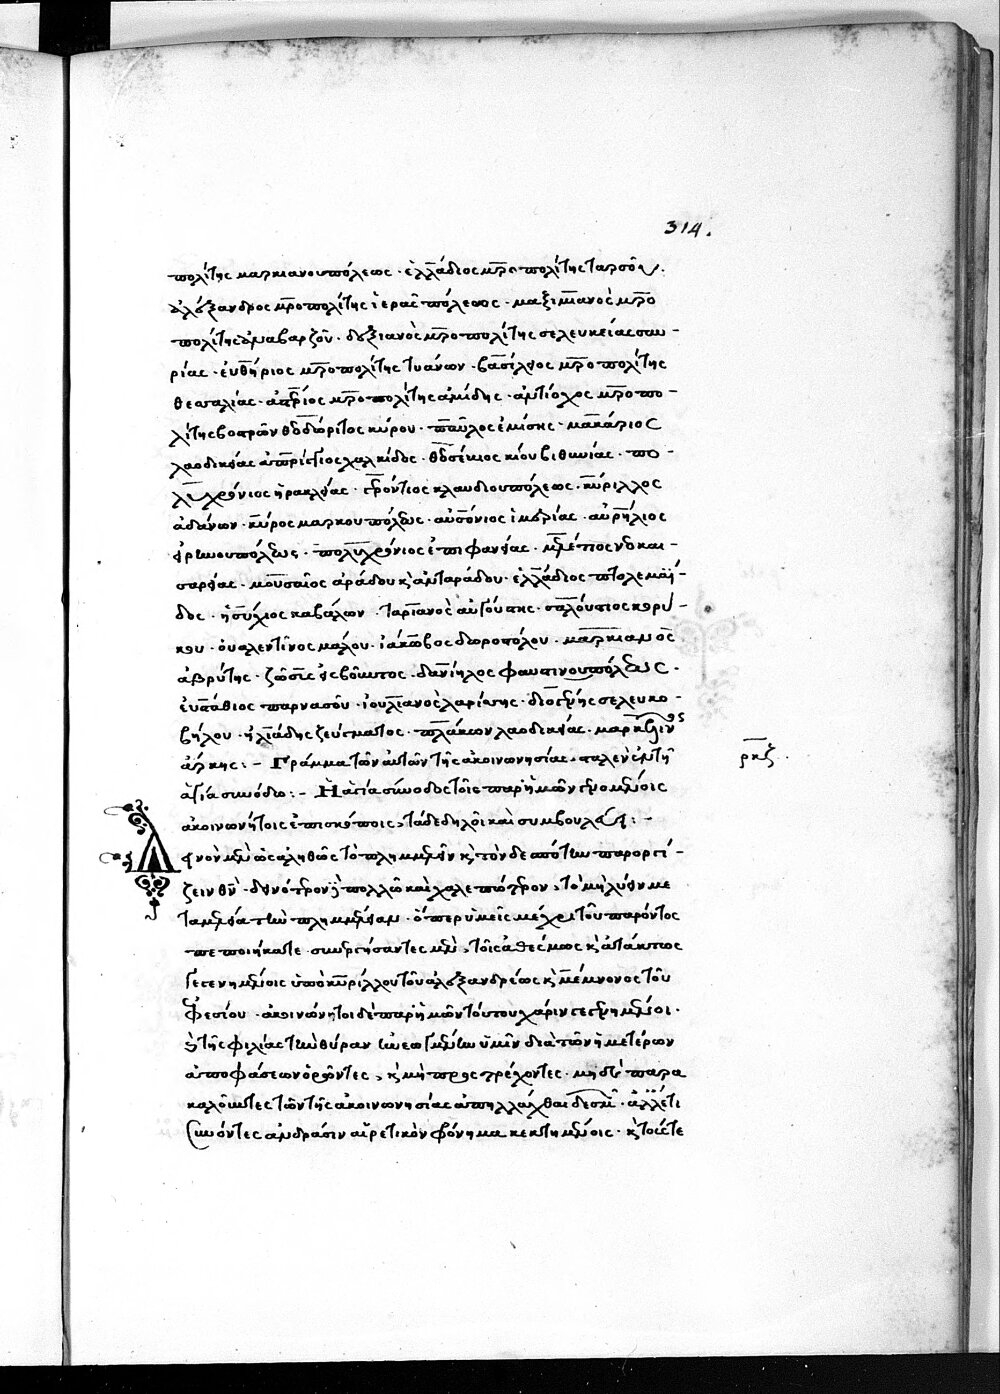 314.
πολίτης μαρκιανουπόλεως · ἑλλάδιος μητροπολίτης ταρσοῦ ·
ἀλέξανδρος μητροπολίτης ἱερᾶς πόλεως · μαξιμιανὸς μητρο
πολίτης ἀναβαρζοῦ · δεξιανὸς μητροπολίτης σελευκείας ἰσαυ-
ρίας · εὐθήριος μητροπολίτης τυάνων · βασίλειος μητροπολίτης
θεσσαλίας · ἀπρίγιος μητροπολίτης ἀμίδης · ἀντίοχος μητροπο-
λίτης βοστρῶν θεοδώριτος κύρου · παῦλος ἐμίσης · μακάριος
λαοδικείας ἀπρίγγιος χαλκίδος · θεοδόσιος κίου βιθυνίας · πο-
λυχρόνιος ἡρακλείας · γερόντιος κλαυδιουπόλεως · κύριλλος
ἀδάνων · κῦρος μαρκουπόλεως · αὐσόνιος ἱμερίας · αὐρήλιος
εἰρηνουπόλεως · πολυχρόνιος ἐπιφανείας · μελέτιος νεοκαι-
σαρείας · μουσαῖος ἀράδου κ̀ ἀνταράδου · ἑλλάδιος πτολεμαΐ-
δος · ἡσύχιος καβάλων · ταριανὸς αὐγούστης · σαλούστιος κορυ-
κου · οὐαλεντῖνος μάλου · ἰάκωβος δωροπόλου · μαρκιανὸς
ἀβρύτης · ζῶσις ἐσβοῦντος · δανιῆλος φαυστινουπόλεως ·
εὐστάθιος παρνασοῦ · ἰουλιανὸς λαρίσσης · διογένης σελευκο-
βήλου · ἡλιάδης ζεύγματος · πλάκων λαοδικείας · μαρκελλῖνος
ἄρκης :- Γράμμα τῶν αὐτῶν τῆς ἀκοινωνησίας, σταλὲν ἐν τῇ
ρκζ ·
ἁγία συνόδω :- Ἡ ἁγία σύνοδος τοῖς παρ' ἡμῶν γενομένοις
ἀκοινωνήτοις ἐπισκόποις, τάδε δηλοῖ καὶ συμβουλεύει :-
Δεινὸν μὲν ὡς ἀληθῶς τὸ πλημμελεῖν κ̀ τὸν δεσπότην παροργί-
ζειν θεὸν · δεινότερον δὲ πολλῶ καὶ χαλεπώτερον, τὸ μὴ λύειν με
ταμελεία τὴν πλημμέλειαν · ὅπερ ὑμεῖς μέχρι τοῦ παρόντος
πεποιήκατε · συνεργήσαντες μὲν, τοῖς ἀθέσμως κ̀ ἀτάκτως
γεγενημένοις ὑπὸ κυρίλλου τοῦ ἀλεξανδρέως κ̀ μέμνονος τοῦ
ἐφεσίου · ἀκοινώνητοι δὲ παρ' ἡμῶν τούτου χάριν γεγενημένοι ·
κ̀ τῆς φιλίας τὴν θύραν ἀνεωγμένην ὑμῖν διὰ τῶν ἡμετέρων
ἀποφάσεων ὁρῶντες, κ̀ μὴ προστρέχοντες · μηδὲ παρα
καλοῦντες τῶν τῆς ἀκοινωνησίας ἀπηλλάχθαι δεσμῶν · ἀλλ' ἔτι
συνόντες ἀνδράσιν αἱρετικὸν φρόνημα κεκτημένοις · κ̀ τοῖς τε